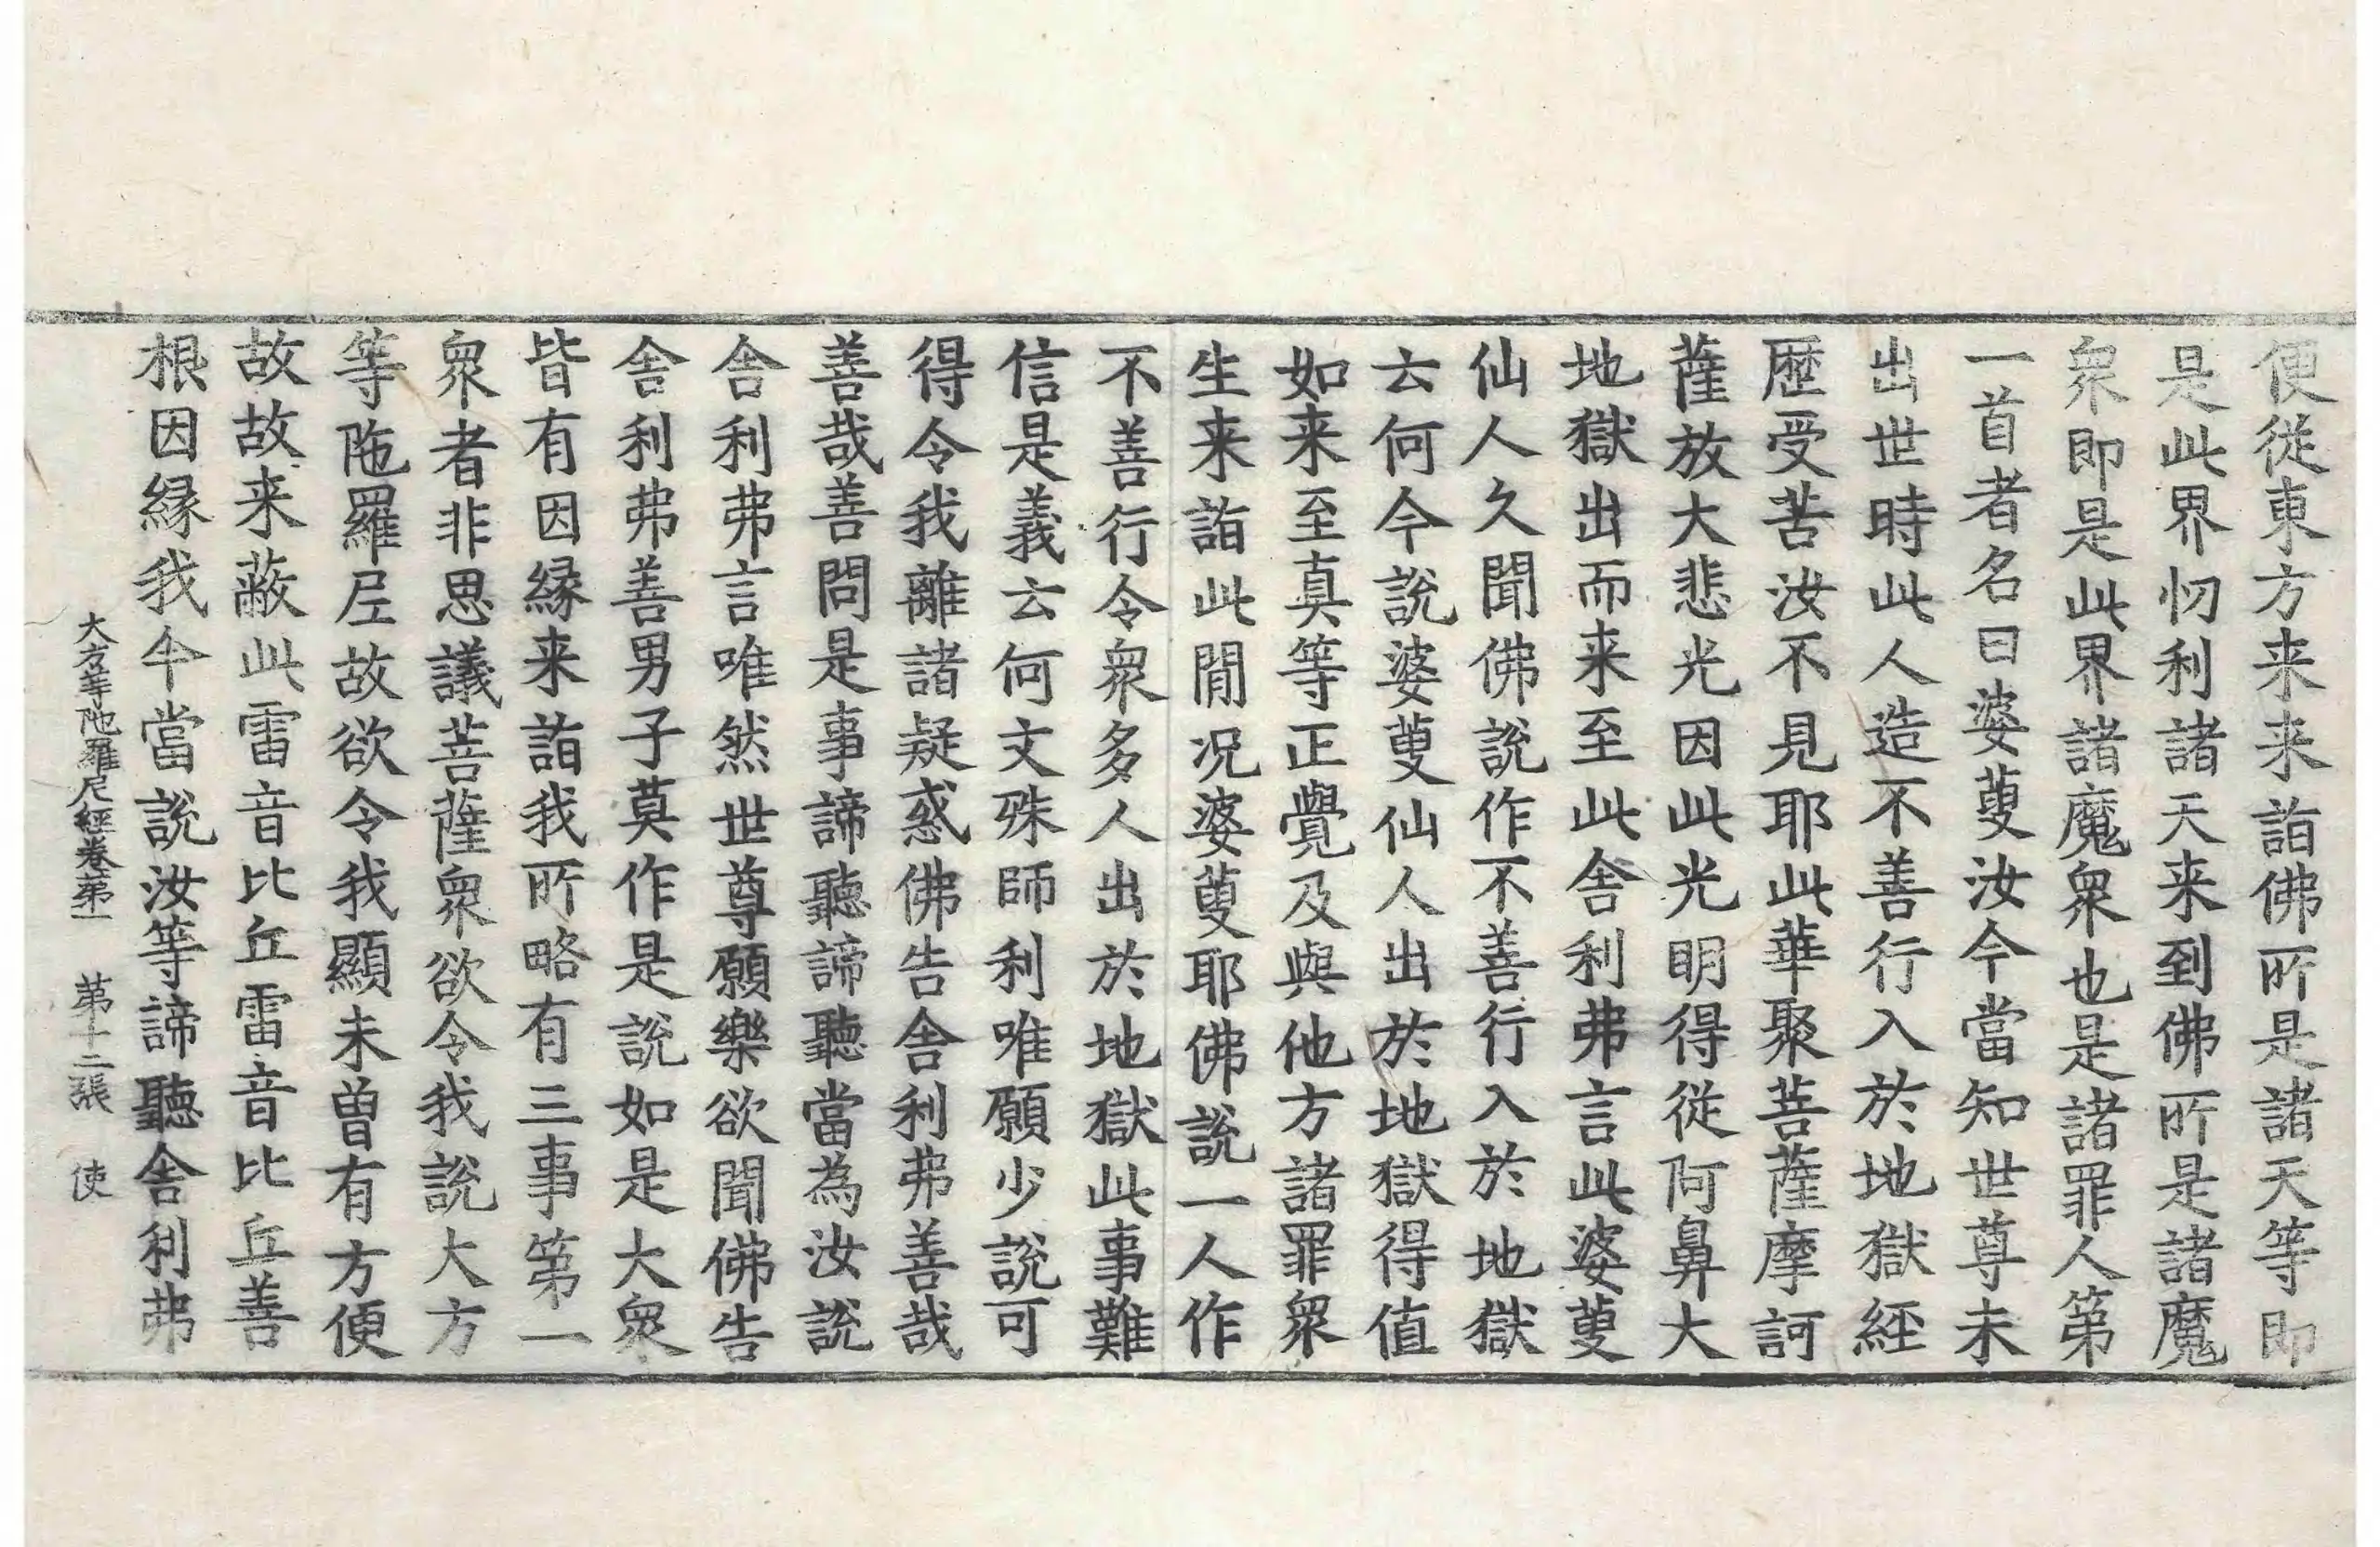 便從東方来来詣佛所是諸天等即
是此界忉利諸天来到佛所是諸魔
衆即是此界諸魔衆也是諸罪人第
一首者名曰婆藪汝今當知世尊未
出世時此人造不善行入於地獄經
歷受苦汝不見耶此華聚菩薩摩訶
薩放大悲光因此光明得從阿鼻大
地獄出而来至此舍利弗言此婆藪
仙人久聞佛說作不善行入於地獄
云何今說婆藪仙人出於地獄得值
如来至真等正覺及與他方諸罪衆
生来詣此閒况婆藪耶佛說一人作
不善行令衆多人出於地獄此事難
信是義云何文殊師利唯願少說可
得令我離諸疑惑佛告舍利弗善哉
善哉善問是事諦聽諦聽當為汝說
舍利弗言唯然世尊願樂欲聞佛告
舍利弗善男子莫作是說如是大衆
皆有因緣来詣我所略有三事第一
衆者非思議菩薩衆欲令我說大方
等陁羅尼故欲令我顯未曾有方便
故故来蔽此雷音比丘雷音比丘善
根因緣我今當說汝等諦聽舍利弗
大方等陁羅尼經卷第一 第十二張 使